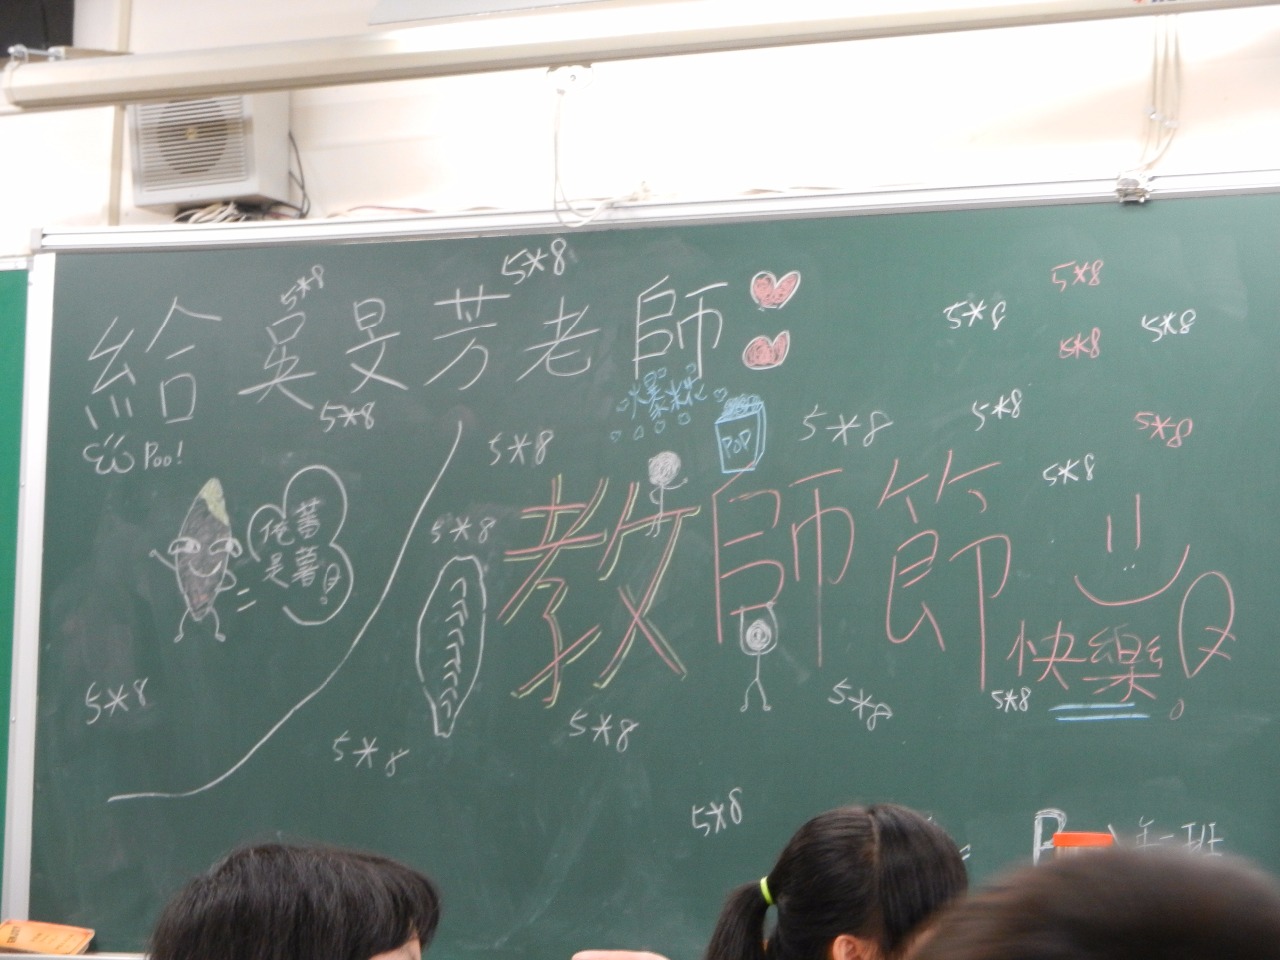 5*8
5*8
給吳旻芳老師
5*8
5*8
5*8
5*8
5*8
爆米
5*8
POP
5*8
5*8
5*8
5*8
5*8
Poo!
俺是蕃薯
5*8
教師節
快樂
5*8
5*8
5*8
5*8
5*8
5*8
年一班